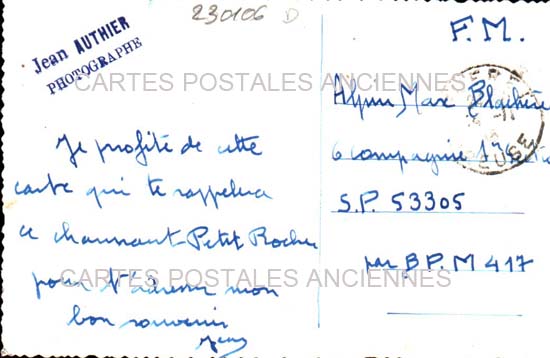 230106 D
Jean AUTHIER
PHOTOGRAPHE
CARTES POSTALES ANCIENNES
Je profite de cette
carte qui te rappelera
ce charmant Petit Rocher
pour t'adresser mon
bon souvenir
Jean
F.M.
Alpin Max Blachère
6 Compagnie
S.P. 53305
par B.P.M 417
CARTES POSTALES ANCIENNES